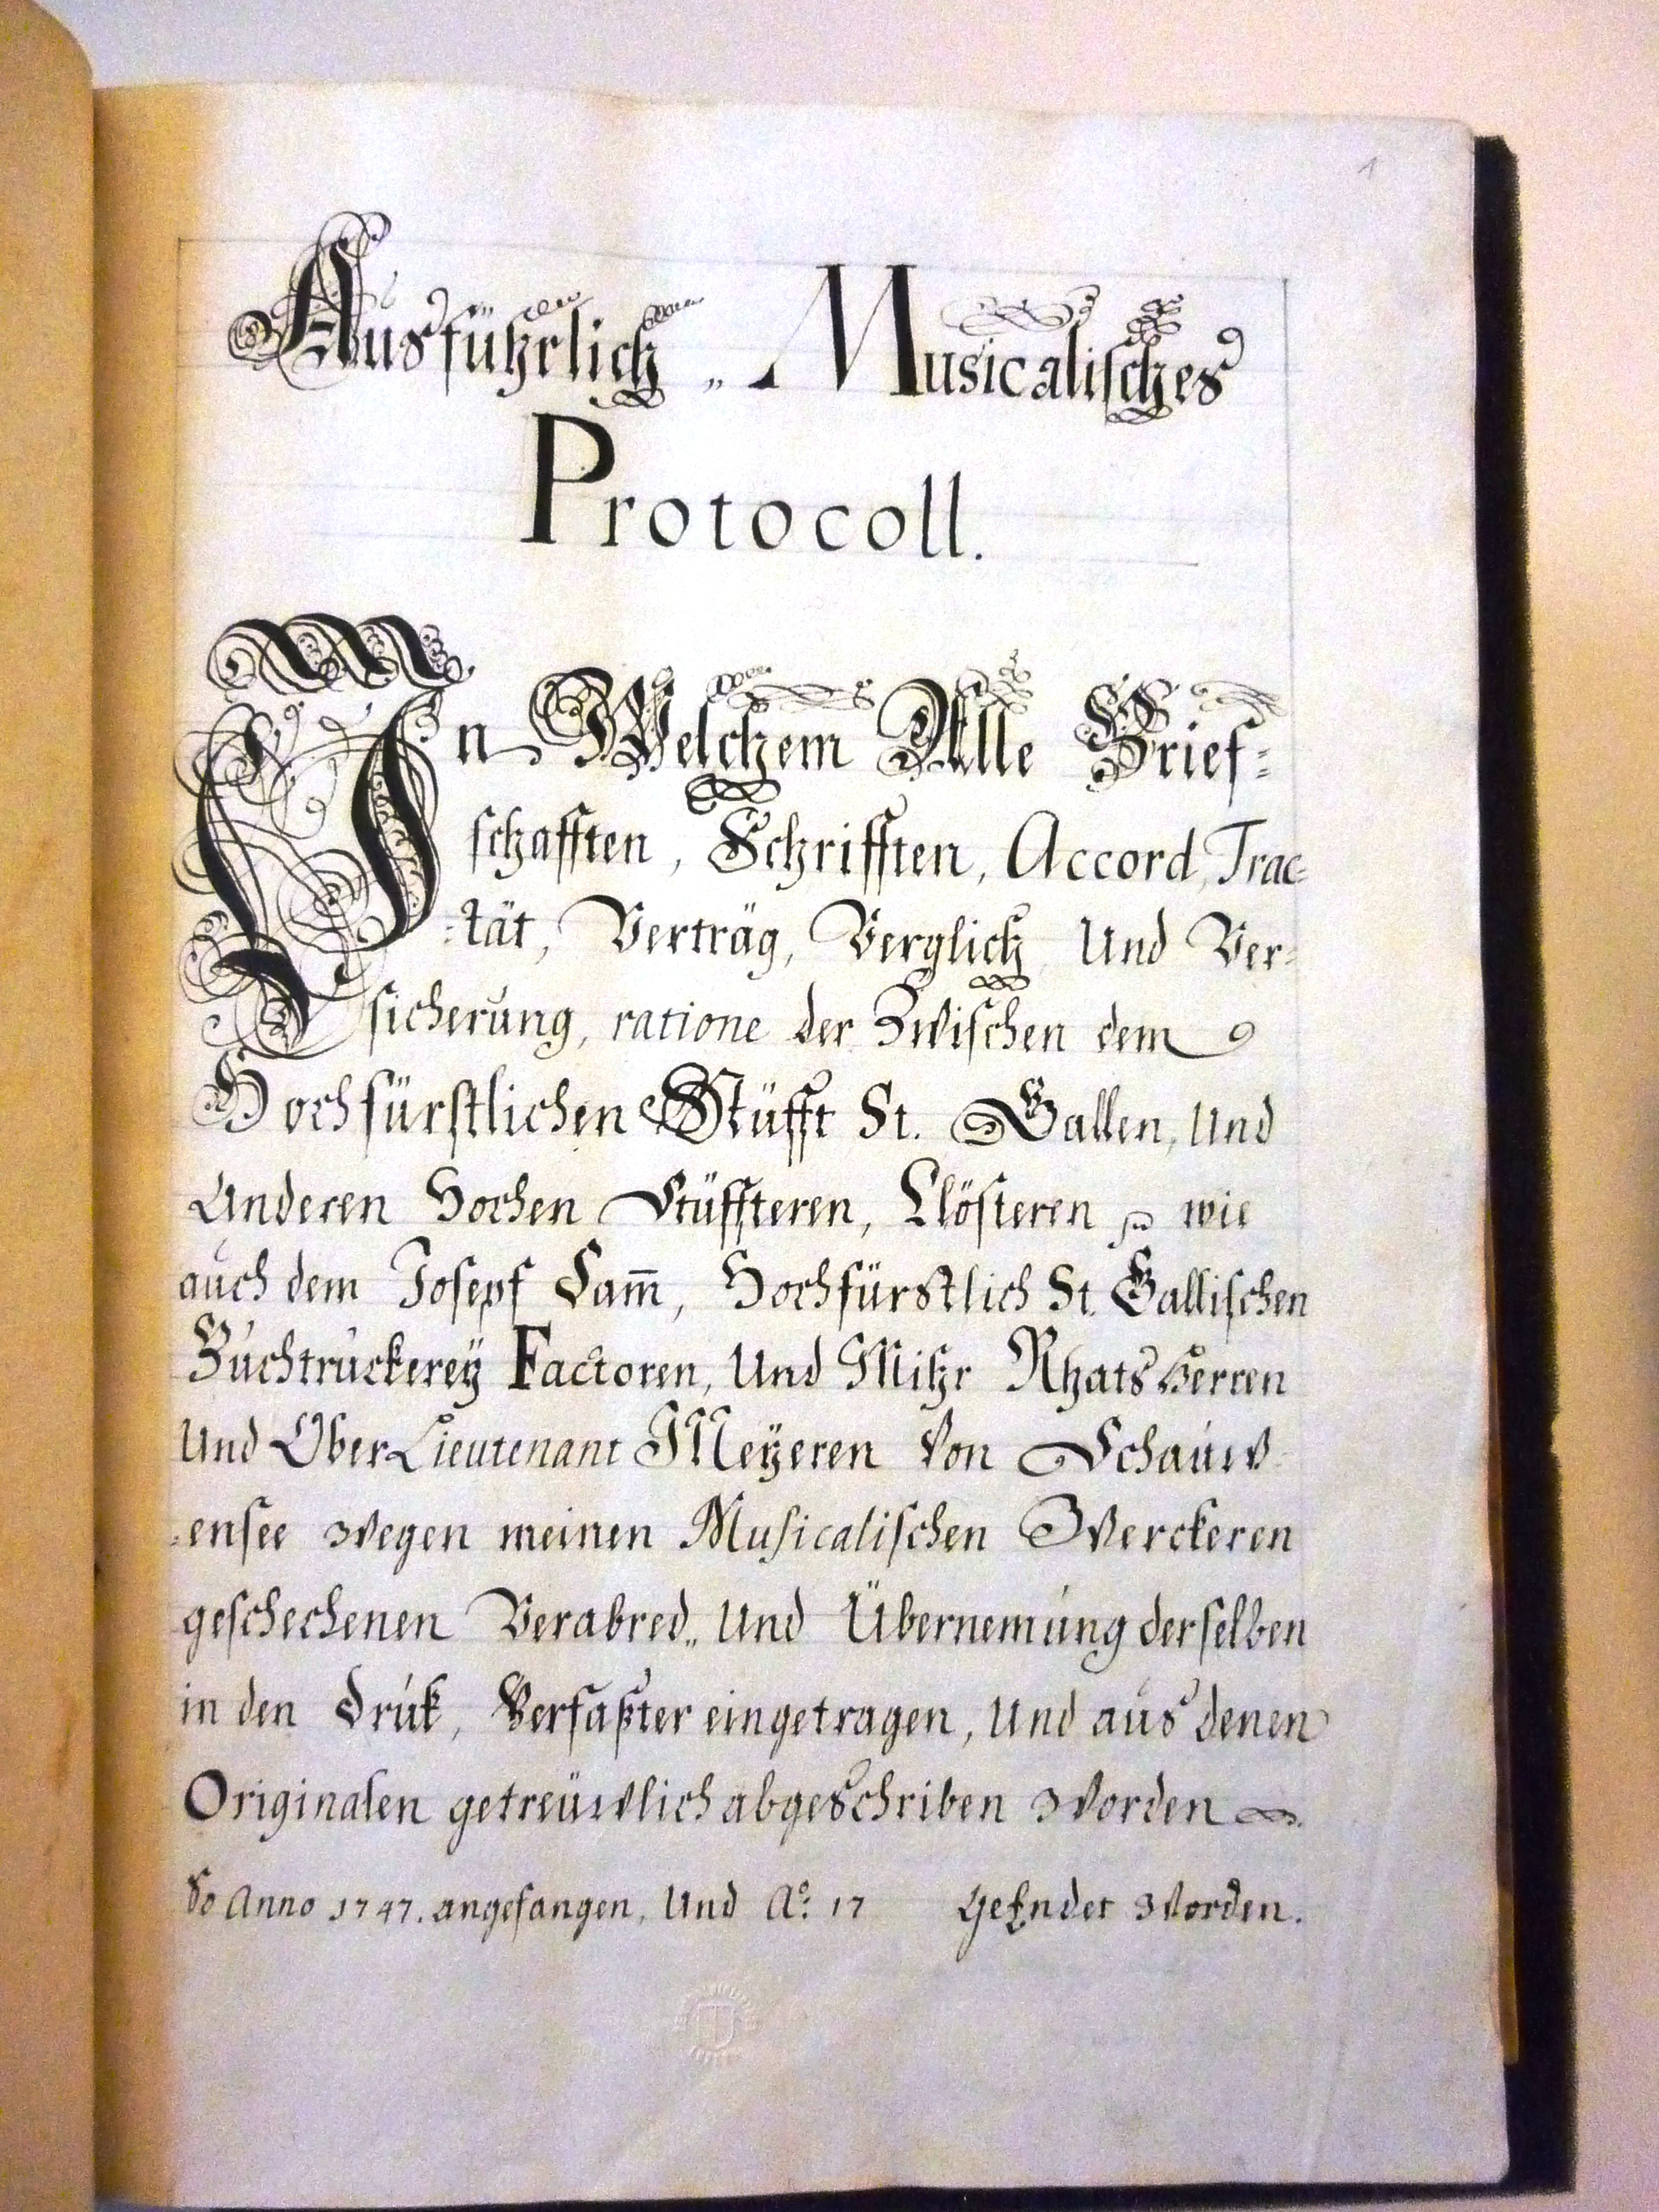 1
Ausführlich „ Musicalisches
Protocoll.
In Welchem Alle Brief=
schafften, Schrifften, Accord, Trac=
=tät, Verträg, Verglich, Und Ver=
sicherung, ratione der Zwischen dem
Hochfürstlichen Stüfft St. Gallen, Und
Anderen Hochen Stüffteren, Clösteren wie
auch dem Joseph Sam̄, Hochfürstlich St. Gallischen
Buchtruckereÿ Factoren, Und Mihr Rhats Herren
Und Ober Lieutenant Meÿeren Von Schauw
=ensee Wegen meinen Musicalischen Werckeren
geschechenen Verabred„ Und Übernemung derselben
in den Druk, Verfaßter eingetragen, Und aus denen
Originalen getreüwlich abgeschriben Worden
So Anno 1747. angefangen, Und Aº: 17 geEndet Worden.